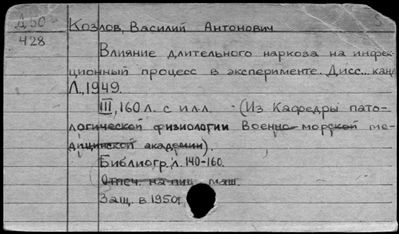 Д 50-
428
Козлов, Василий Антонович
Влияние длительного наркоза на инфек-
ционный процесс в эксперименте. Дисс... канд
Л., 1949.
III, 160 л. с илл. - (Из Кафедры пато-
логической физиологии Военно-морской ме-
дицинской академии).
Библиогр. л. 140-160.
Отпеч. на пиш. маш.
Защ. в 1950г